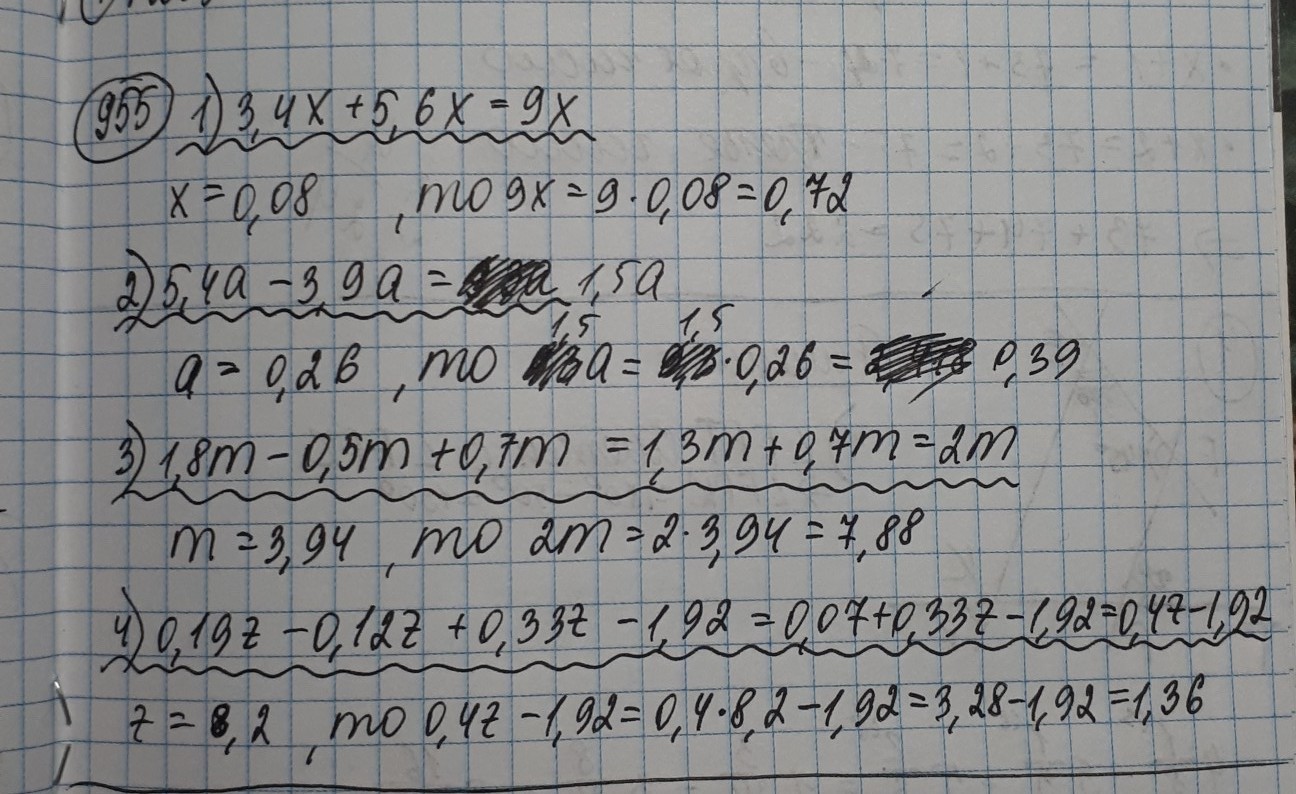 955 1) 3,4x + 5,6x = 9x
x = 0,08 , то 9x = 9 · 0,08 = 0,72
2) 5,4a − 3,9a = 1,5a
a = 0,26 , то 1,5a = 1,5 · 0,26 = 0,39
3) 1,8m − 0,5m + 0,7m = 1,3m + 0,7m = 2m
m = 3,94 , то 2m = 2 · 3,94 = 7,88
4) 0,19z − 0,12z + 0,33z − 1,92 = 0,07 + 0,33z − 1,92 = 0,4z − 1,92
z = 8,2 , то 0,4z − 1,92 = 0,4 · 8,2 − 1,92 = 3,28 − 1,92 = 1,36